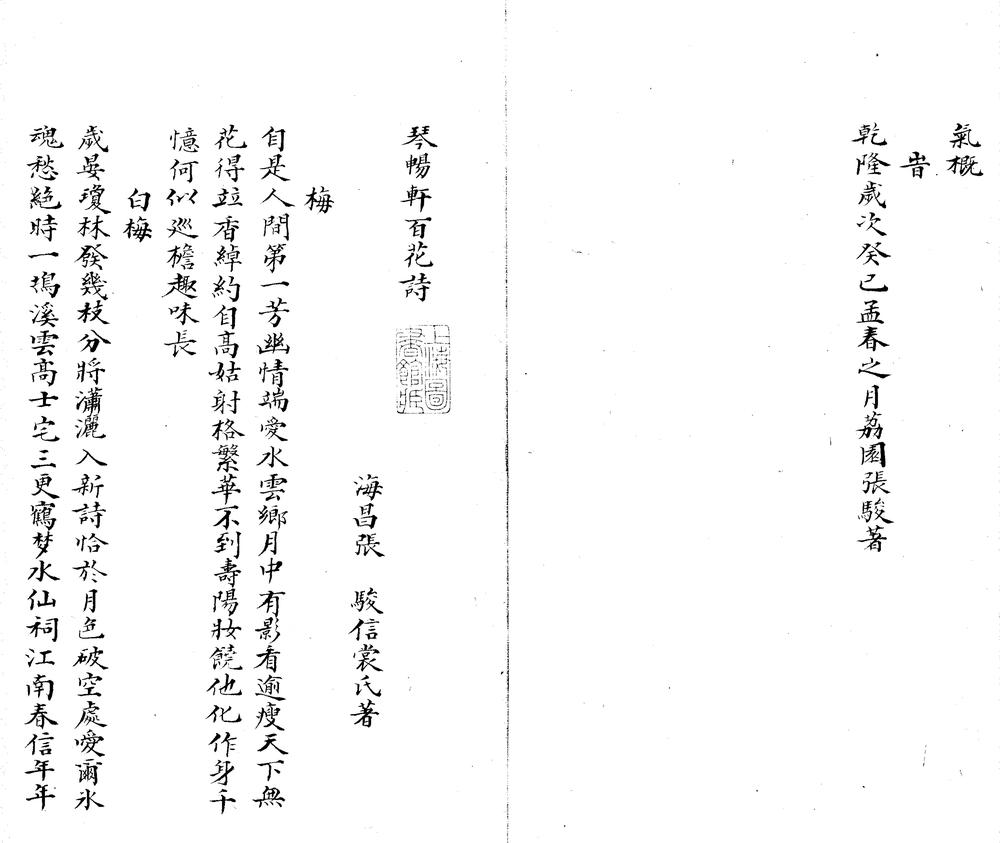 氣概
旹
乾隆歲次癸巳孟春之月荔園張駿著
琴暢軒百花詩
上海圖書館藏
海昌張　駿信裳氏著
梅
自是人間第一芳幽情端愛水雲鄉月中有影看逾瘦天下無
花得竝香綽約自高姑射格繁華不到壽陽妝饒他化作身千
憶何似巡檐趣味長
白梅
歲晏瓊林發幾枝分將瀟灑入新詩恰於月色破空處愛爾冰
魂愁絕時一塢溪雲高士宅三更鶴梦水仙祠江南春信年年